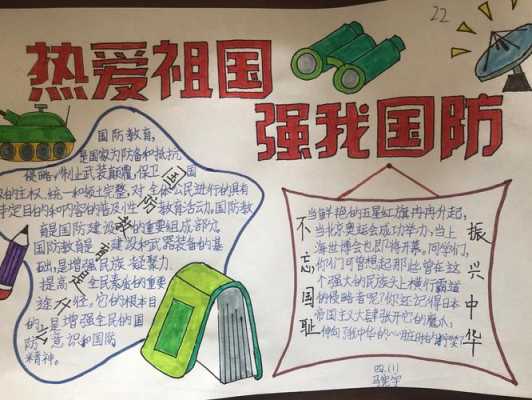 22
热爱祖国
强我国防
国防教育,
是国家为防备和抵抗
侵略,制止武装颠覆,保卫国
的主权、统一和领土完整,对全体公民进行的具有
特定目的和内容的普及性教育活动。国防教
育是国防建设的重要组成部分,
国防教育是 建设和武器装备的基
础,是增强民族凝聚力、
提高全民素养的重要
途径。它的根本目
的,是增强全民的国
防意识和国防
精神。
国防教育
不忘国耻
当鲜艳的五星红旗冉冉升起,
当北京奥运会成功举办,当上
海世博会 将开幕,同学们,
你们可曾想起那些曾在这
个强大的民族头上横行霸道
的侵略者呢?你还记得日本
帝国主义大肆张开它的魔爪,
伸向 中华的心脏时的
振兴中华
四.(1)